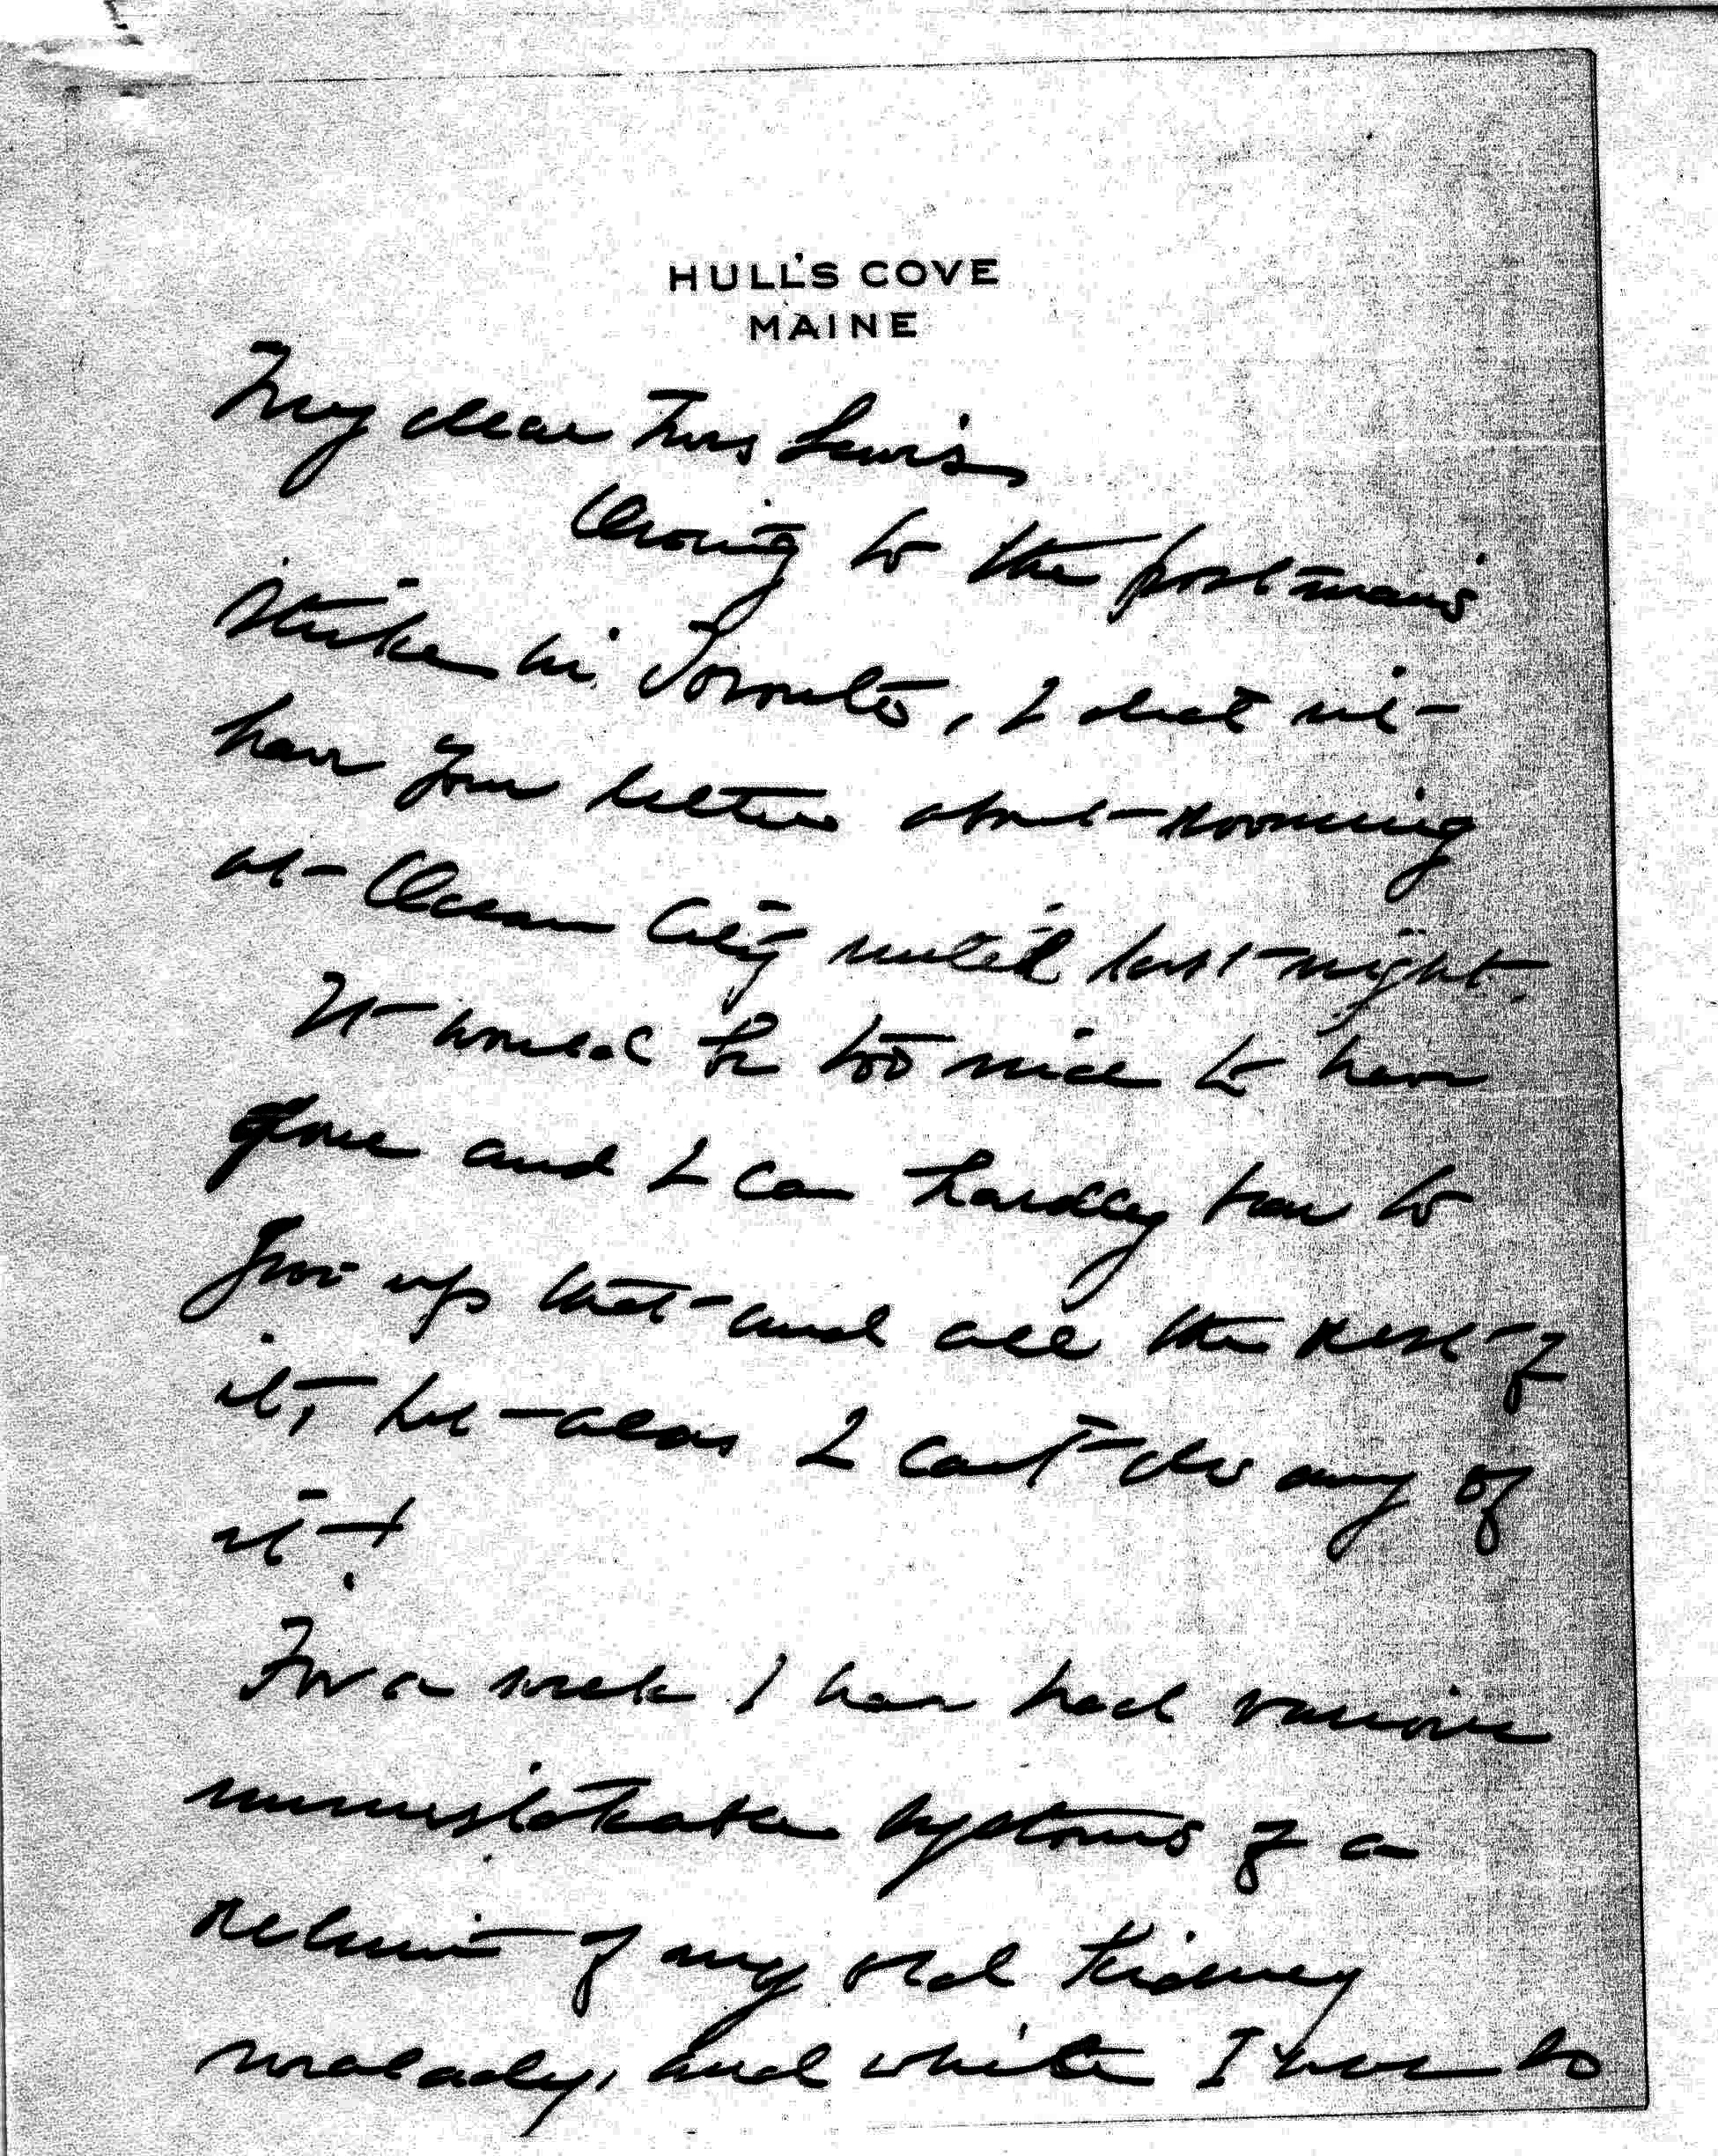 HULL'S COVE
MAINE
My dear Mrs Lewis
Owing to the postman's
strike in Toronto, I did not
have your letter about rooming
at Ocean City until last night.
It would be too nice to have
done and I can hardly bear to
give up that and all the rest of
it, but alas I can't do any of
it!
For a week I have had various
unmistakable syptoms of a
return of my old kidney
malady, and while I have to